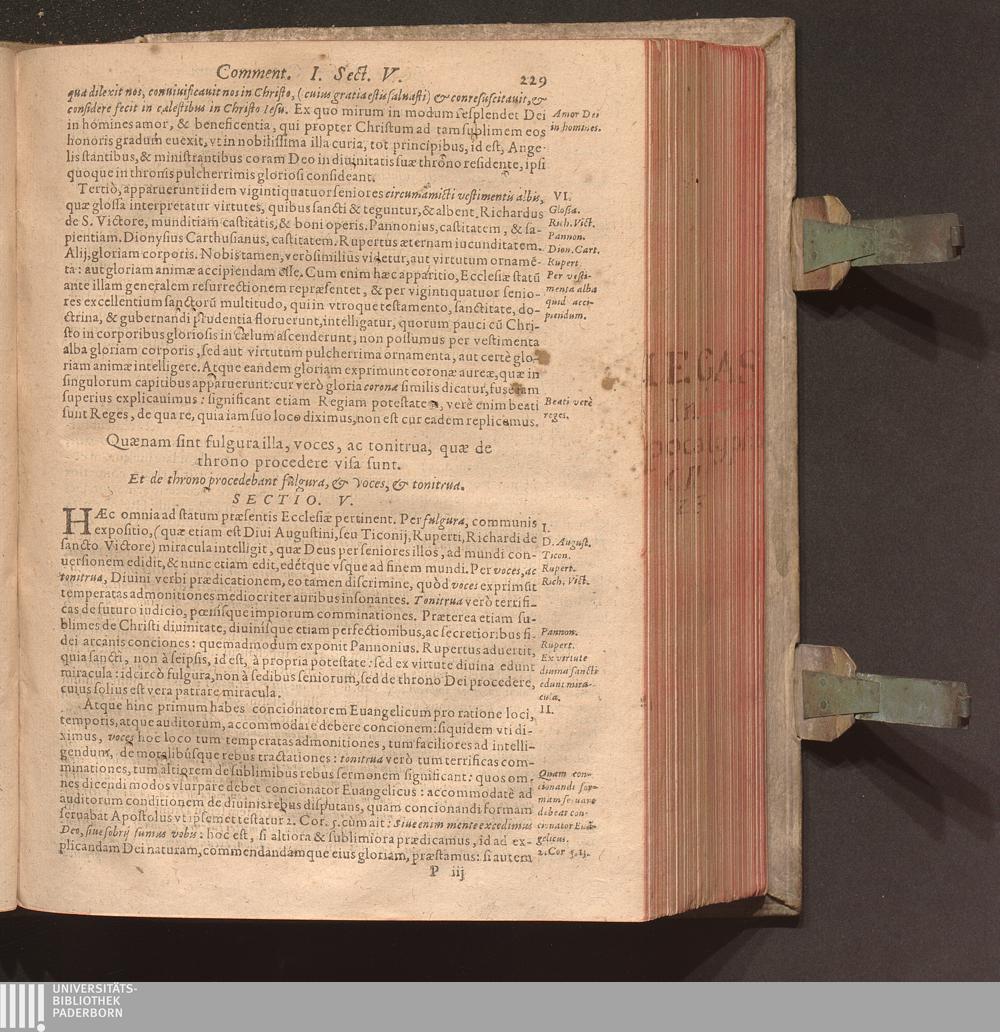 Comment. I. Sect. V. 229
qua dilexit nos, conviuificauit nos in Christo, (cuius gratia estis saluasti) & conresuscitauit, &
considere fecit in cælestibus in Christo Iesu. Ex quo mirum in modum resplendet Dei
in homines amor, & beneficentia, qui propter Christum ad tam sublimem eos
honoris gradum euexit, vt in nobilissima illa curia, tot principibus, id est, Ange-
lis stantibus, & ministrantibus coram Deo in diuinitatis suæ throno residente, ipsi
quoque in thronis pulcherrimis gloriosi consideant.
Amor Dei
in homines.
Tertiò, apparuerunt iidem vigintiquatuor seniores circumamicti vestimentis albis,
quæ glossa interpretatur virtutes, quibus sancti & teguntur, & albent, Richardus
de S. Victore, munditiam castitatis, & boni operis. Pannonius, castitatem, & sa-
pientiam. Dionysius Carthusianus, castitatem. Rupertus æternam iucunditatem.
Alij, gloriam corporis. Nobis tamen, verò similius videtur, aut virtutum ornamē-
ta: aut gloriam animæ accipiendam esse. Cum enim hæc apparitio, Ecclesiæ statū
ante illam generalem resurrectionem repræsentet, & per vigintiquatuor senio-
res excellentium sanctorū multitudo, qui in vtroque testamento, sanctitate, do-
ctrina, & gubernandi prudentia floruerunt, intelligatur, quorum pauci cū Chri-
sto in corporibus gloriosis in cælum ascenderunt, non possumus per vestimenta
alba gloriam corporis, sed aut virtutum pulcherrima ornamenta, aut certè glo-
riam animæ intelligere. Atque eandem gloriam exprimunt coronæ aureæ, quæ in
singulorum capitibus apparuerunt: cur verò gloria coronæ similis dicatur, fusè iam
superius explicauimus: significant etiam Regiam potestatem, verè enim beati
sunt Reges, de qua re, quia iam suo loco diximus, non est cur eadem replicemus.
VI.
Glossa.
Rich. Vict.
Pannon.
Dion. Cart.
Rupert.
Per vesti-
menta alba
quid acci-
piendum.
Beati verè
reges.
Quænam sint fulgura illa, voces, ac tonitrua, quæ de
throno procedere visa sunt.
Et de throno procedebant fulgura, & voces, & tonitrua.
SECTIO. V.
HÆc omnia ad statum præsentis Ecclesiæ pertinent. Per fulgura, communis
expositio, (quæ etiam est Diui Augustini, seu Ticonij, Ruperti, Richardi de
sancto Victore) miracula intelligit, quæ Deus per seniores illos, ad mundi con-
uersionem edidit, & nunc etiam edit, edétque vsque ad finem mundi. Per voces, ac
tonitrua, Diuini verbi prædicationem, eo tamen discrimine, quòd voces exprimit
temperatas admonitiones mediocriter auribus insonantes. Tonitrua verò terrifi-
cas de futuro iudicio, pœnísque impiorum comminationes. Præterea etiam su-
blimes de Christi diuinitate, diuinísque etiam perfectionibus, ac secretioribus fi-
dei arcanis conciones: quemadmodum exponit Pannonius. Rupertus aduertit,
quia sancti, non à seipsis, id est, à propria potestate: sed ex virtute diuina edunt
miracula: idcircò fulgura, non à sedibus seniorum, sed de throno Dei procedere,
cuius solius est vera patrare miracula.
I.
D. August.
Ticon.
Rupert.
Rich. Vict.
Pannon.
Rupert.
Ex virtute
diuina sancti
edunt mira-
cula.
Atque hinc primum habes concionatorem Euangelicum pro ratione loci,
temporis, atque auditorum, accommodare debere concionem: siquidem vti di-
ximus, voces hoc loco tum temperatas admonitiones, tum faciliores ad intelli-
gendum, de moralibúsque rebus tractationes: tonitrua verò tum terrificas com-
minationes, tum altiorem de sublimibus rebus sermonem significant: quos om-
nes dicendi modos vsurpare debet concionator Euangelicus: accommodatè ad
auditorum conditionem de diuinis rebus disputans, quam concionandi formam
seruabat Apostolus vt ipsemet testatur 2. Cor. 5. cùm ait: Siue enim mente excedimus
Deo, siue sobrij sumus vobis: hoc est, si altiora & sublimiora prædicamus, id ad ex-
plicandam Dei naturam, commendandámque eius gloriam, præstamus: si autem
II.
Quam con-
cionandi for-
mam seruare
debeat con-
cionator Euā-
gelicus.
2. Cor 5.13.
P iij
LEGAS
In
pocalyp
UNIVERSITÄTS-
BIBLIOTHEK
PADERBORN